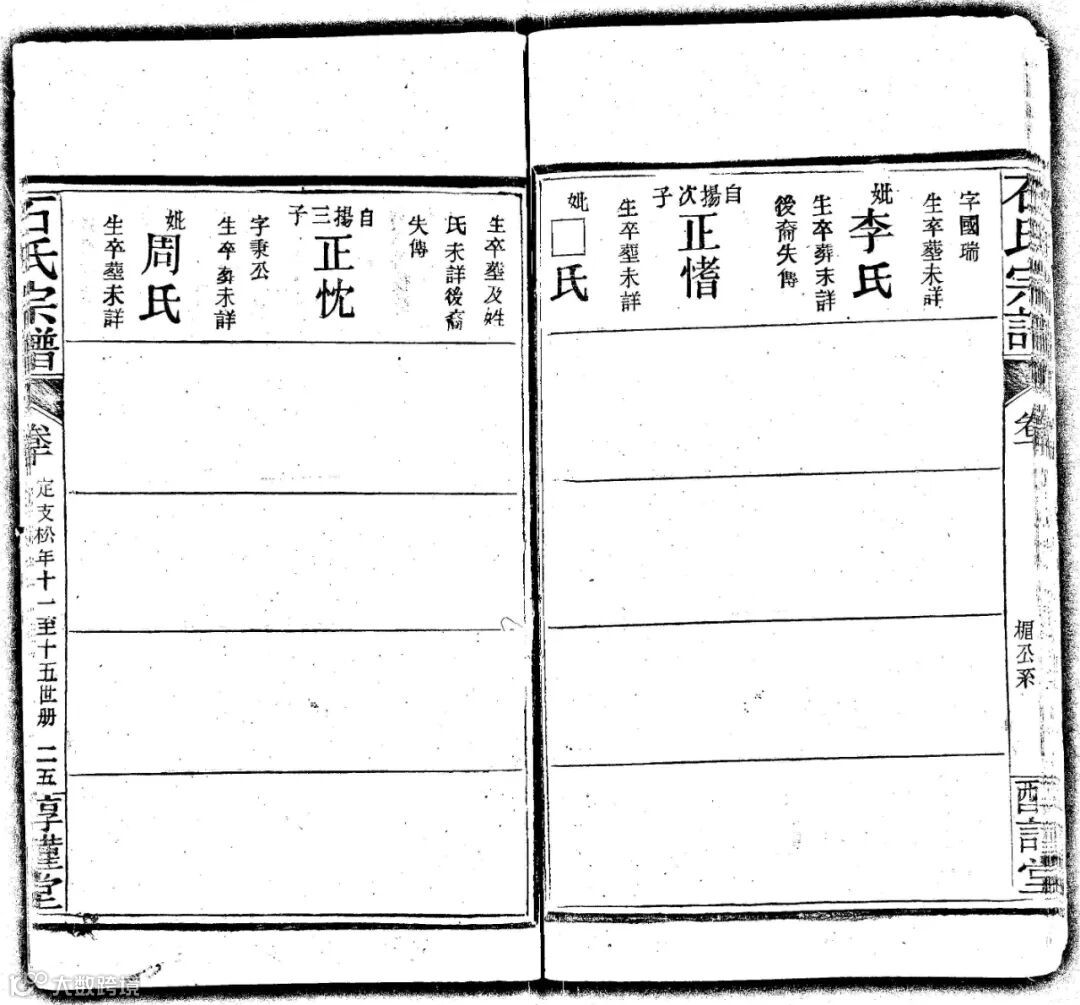 石氏宗譜
卷十
楣公系
字國瑞
生卒塟未詳
妣李氏
生卒葬未詳
後裔失傳
自揚次子
正愭
生卒塟未詳
妣□氏
生卒塟及姓
氏未詳後裔
失傳
自揚三子
正忱
字秉公
生卒葬未詳
妣周氏
生卒塟未詳
石氏宗譜
卷十
定支松年十一至十五世册
二五
惇謹堂
大数跨境